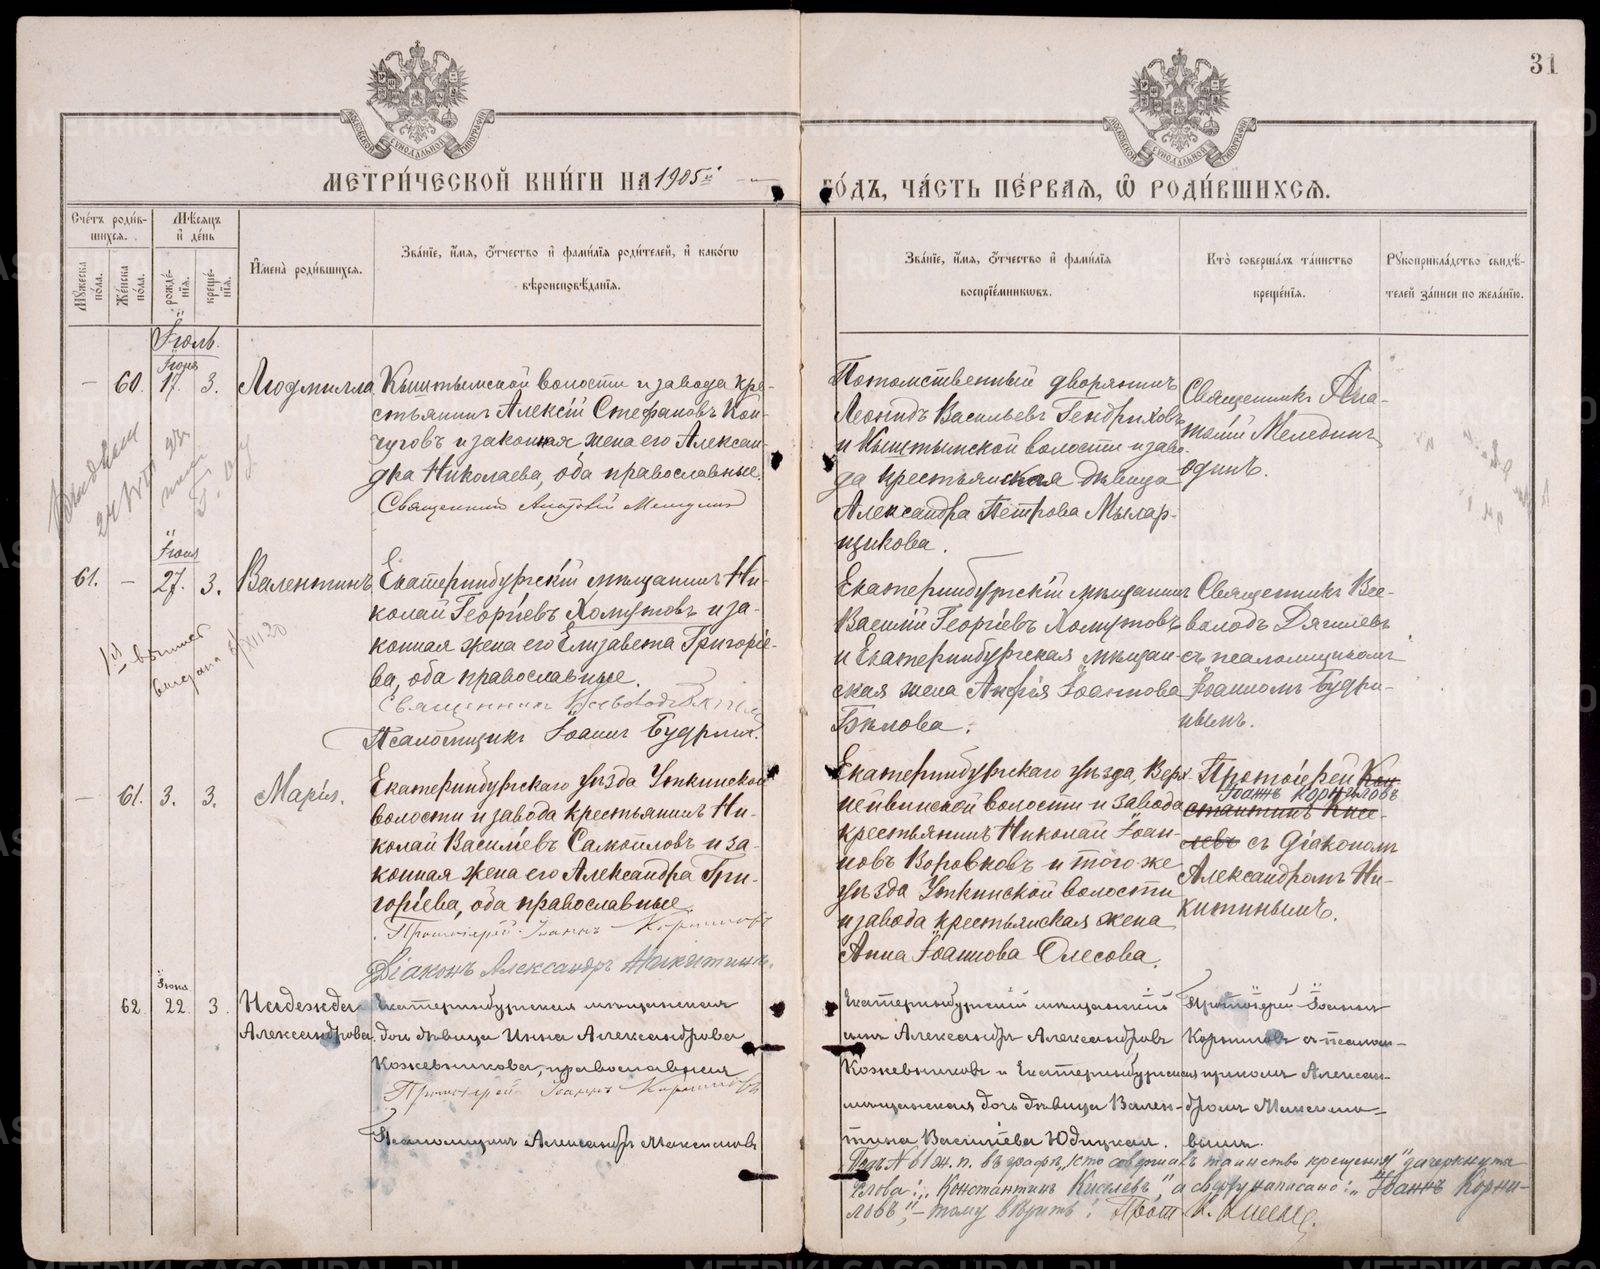 31
МЕТРИ́ЧЕСКОЙ КНИ́ГИ НА 1905й
ГО́ДЪ, ЧА́СТЬ ПЕ́РВАЯ, Ѿ РОДИ́ВШИХСѦ.
Сче́тъ роди́в-
шихсѧ.
Мѣ́сѧцъ
и҆ де́нь
Мꙋ́жеска по́ла.
Же́нска по́ла.
рожде́-
нїѧ.
креще́-
нїѧ.
И҆мена̀ роди́вшихсѧ.
Зва́нїе, и҆́мѧ, ѻ҆́тчество и҆ фами́лїѧ роди́телей, и҆ како́гѡ
вѣроисповѣ́данїѧ.
Зва́нїе, и҆́мѧ, ѻ҆́тчество и҆ фами́лїѧ
воспрїе́мникѡвъ.
Кто̀ соверша́лъ та́инство
креще́нїѧ.
Рꙋкоприкла́дство свидѣ́-
телей за́писи по жела́нїю.
Іюль.
Іюня
— 60. 17. 3. Людмилла
Кыштымской волости и завода кре-
стьянинъ Алексій Стефановъ Кон-
чуговъ и законная жена его Алексан-
дра Николаева, оба православные.
Священникъ Анатолій Меледин
Потомственный дворянинъ
Леонидъ Васильевъ Гендриховъ
и Кыштымской волости и заво-
да крестьянская дѣвица
Александра Петрова Мылар-
щикова.
Священникъ Ана-
толій Меледин
одинъ.
Іюня
61. — 27. 3. Валентинъ
Екатеринбургскій мѣщанинъ Ни-
колай Георгіевъ Хомутовъ и за-
конная жена его Елизавета Григоріе-
ва, оба православные.
Священникъ Всеволодъ
Псаломщикъ Іоаннъ Будринъ.
Екатеринбургскій мѣщанинъ
Василій Георгіевъ Хомутовъ
и Екатеринбургская мѣщан-
ская жена Анфія Іоаннова
Бѣлова.
Священникъ Все-
володъ Дягилевъ
съ псаломщикомъ
Іоанномъ Будри-
нымъ.
выписъ
выдана
— 61. 3. 3. Марія.
Екатеринбургскаго уѣзда Уткинской
волости и завода крестьянинъ Ни-
колай Василіевъ Самойловъ и за-
конная жена его Александра Гри-
горіева, оба православные.
Протоіерей Іоаннъ Корниловъ
Діаконъ Александръ Никитинъ.
Екатеринбургскаго уѣзда, Верх-
нейвинской волости и завода
крестьянинъ Николай Іоан-
новъ Воровковъ и того же
уѣзда Уткинской волости
и завода крестьянская жена
Анна Іоаннова Олесова.
Протоіерей Кон-
Іоаннъ Корниловъ
стантинъ Кисе-
левъ съ діакономъ
Александромъ Ни-
китинымъ.
Іюня
62 22 3. Надежда
Александрова
Екатеринбургская мѣщанская
дочь дѣвица Инна Александрова
Кожевникова, православная
Протоіерей Іоаннъ Корниловъ
Псаломщикъ Александръ Максимовъ
Екатеринбургскій мѣщанскій
сынъ Александръ Александровъ
Кожевниковъ и Екатеринбургская
мѣщанская дочь дѣвица Вален-
тина Василіева Юдицкая.
Протоіерей Іоаннъ
Корниловъ съ псалом-
щикомъ Алексан-
дромъ Максимо-
вымъ.
Подъ № 61 ж. п. въ графѣ „кто совершалъ таинство крещенія" зачеркнута
слова: „Константинъ Киселевъ", а сверху написано: „Іоаннъ Корни-
ловъ", – тому вѣрить. Прот.